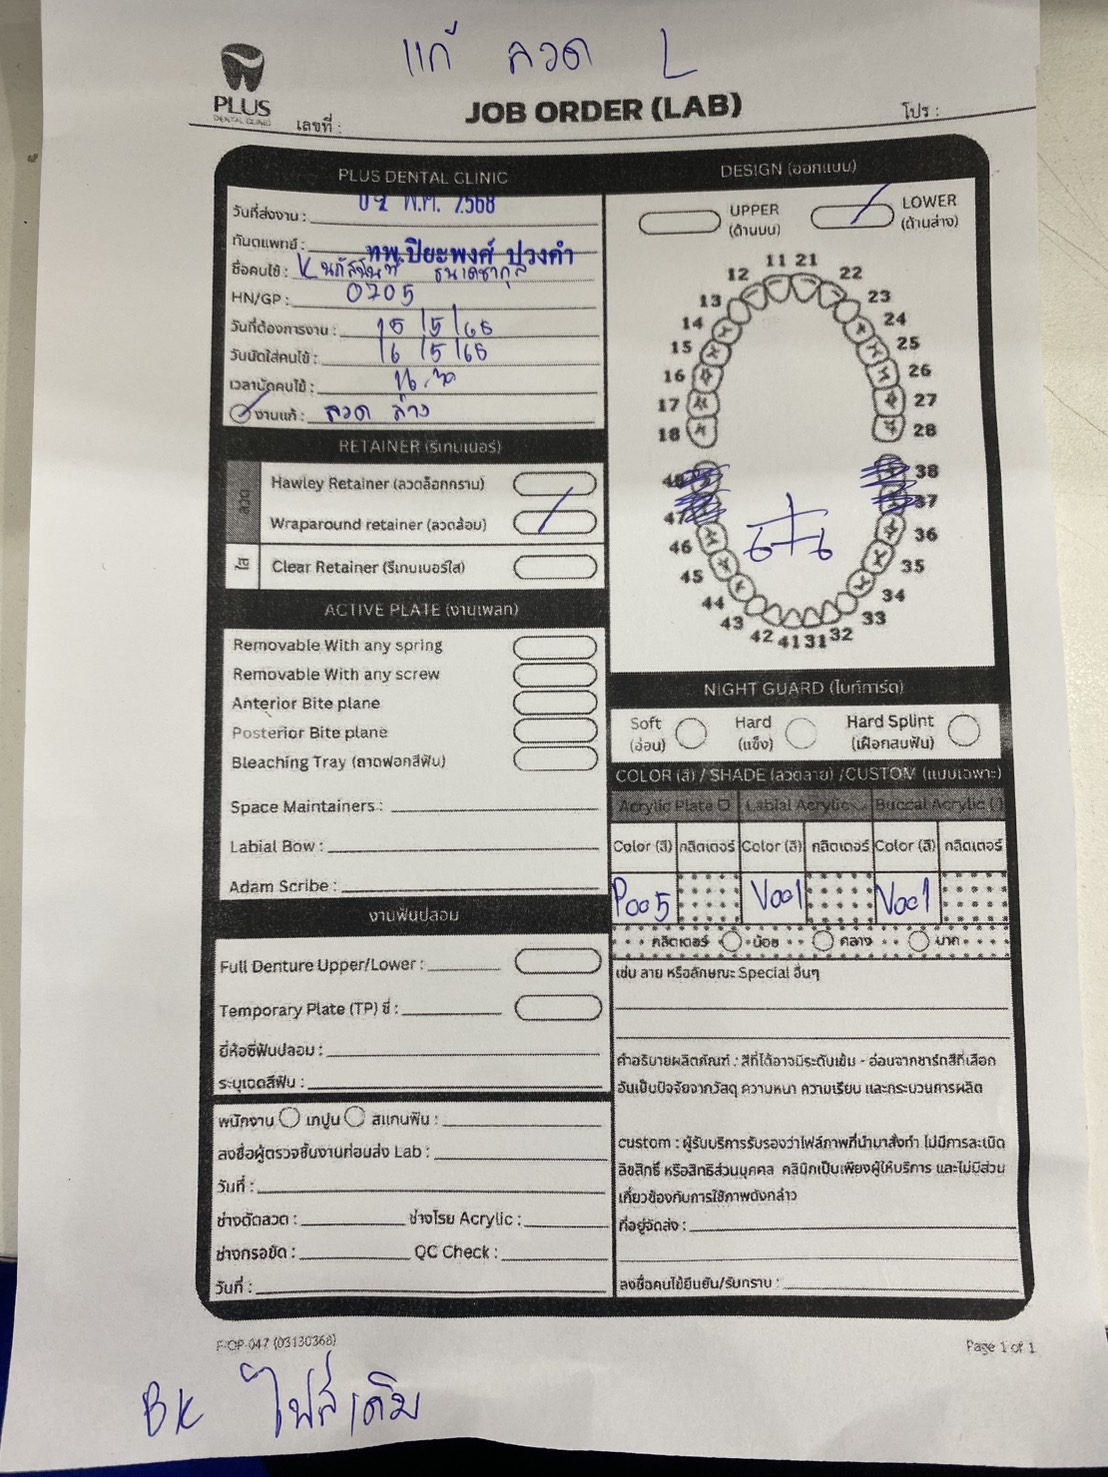 แก้ ลวด L
PLUS
DENTAL CLINIC
JOB ORDER (LAB)
เลขที่ :
โปร :
PLUS DENTAL CLINIC
วันที่ส่งงาน : 0 พ.ค. 2568
ทันตแพทย์ : ทพ.ปิยะพงศ์ ปวงคำ
ชื่อคนไข้ : K นภัสนันท์ ธนาเดชากุล
HN/GP : 0705
วันที่ต้องการงาน : 15/5/68
วันนัดใส่คนไข้ : 16/5/68
เวลานัดคนไข้ : 16.30
งานแก้ : ลวด ล่าง
RETAINER (รีเทนเนอร์)
ลวด
Hawley Retainer (ลวดล็อกกราม)
Wraparound retainer (ลวดล้อม)
ใส
Clear Retainer (รีเทนเนอร์ใส)
ACTIVE PLATE (งานเพลท)
Removable With any spring
Removable With any screw
Anterior Bite plane
Posterior Bite plane
Bleaching Tray (ถาดฟอกสีฟัน)
Space Maintainers :
Labial Bow :
Adam Scribe :
งานฟันปลอม
Full Denture Upper/Lower :
Temporary Plate (TP) ซี่ :
ยี่ห้อซี่ฟันปลอม :
ระบุเฉดสีฟัน :
พนักงาน เทปูน สแกนฟัน :
ลงชื่อผู้ตรวจชิ้นงานก่อนส่ง Lab :
วันที่ :
ช่างดัดลวด : ช่างโรย Acrylic :
ช่างกรอขัด : QC Check :
วันที่ :
DESIGN (ออกแบบ)
UPPER
(ด้านบน)
LOWER
(ด้านล่าง)
11 21
12 22
13 23
14 24
15 25
16 26
17 27
18 28
48 38
47 37
46 36
45 35
44 34
43 33
42 41 31 32
6 6
NIGHT GUARD (ไนท์การ์ด)
Soft
(อ่อน)
Hard
(แข็ง)
Hard Splint
(เฝือกสบฟัน)
COLOR (สี) / SHADE (ลวดลาย) /CUSTOM (แบบเฉพาะ)
Acrylic Plate Labial Acrylic Buccal Acrylic ( )
Color (สี) กลิตเตอร์ Color (สี) กลิตเตอร์ Color (สี) กลิตเตอร์
P005 V001 V001
กลิตเตอร์ น้อย กลาง มาก
เช่น ลาย หรือลักษณะ Special อื่นๆ
คำอธิบายผลิตภัณฑ์ : สีที่ได้อาจมีระดับเข้ม - อ่อนจากชาร์ทสีที่เลือก
อันเป็นปัจจัยจากวัสดุ ความหนา ความเรียบ และกระบวนการผลิต
custom : ผู้รับบริการรับรองว่าไฟล์ภาพที่นำมาสั่งทำ ไม่มีการละเมิด
ลิขสิทธิ์ หรือสิทธิส่วนบุคคล คลินิกเป็นเพียงผู้ให้บริการ และไม่มีส่วน
เกี่ยวข้องกับการใช้ภาพดังกล่าว
ที่อยู่จัดส่ง :
ลงชื่อคนไข้ยืนยัน/รับทราบ :
F-OP-047 (03130368)
Page 1 of 1
BK ไฟล์เดิม